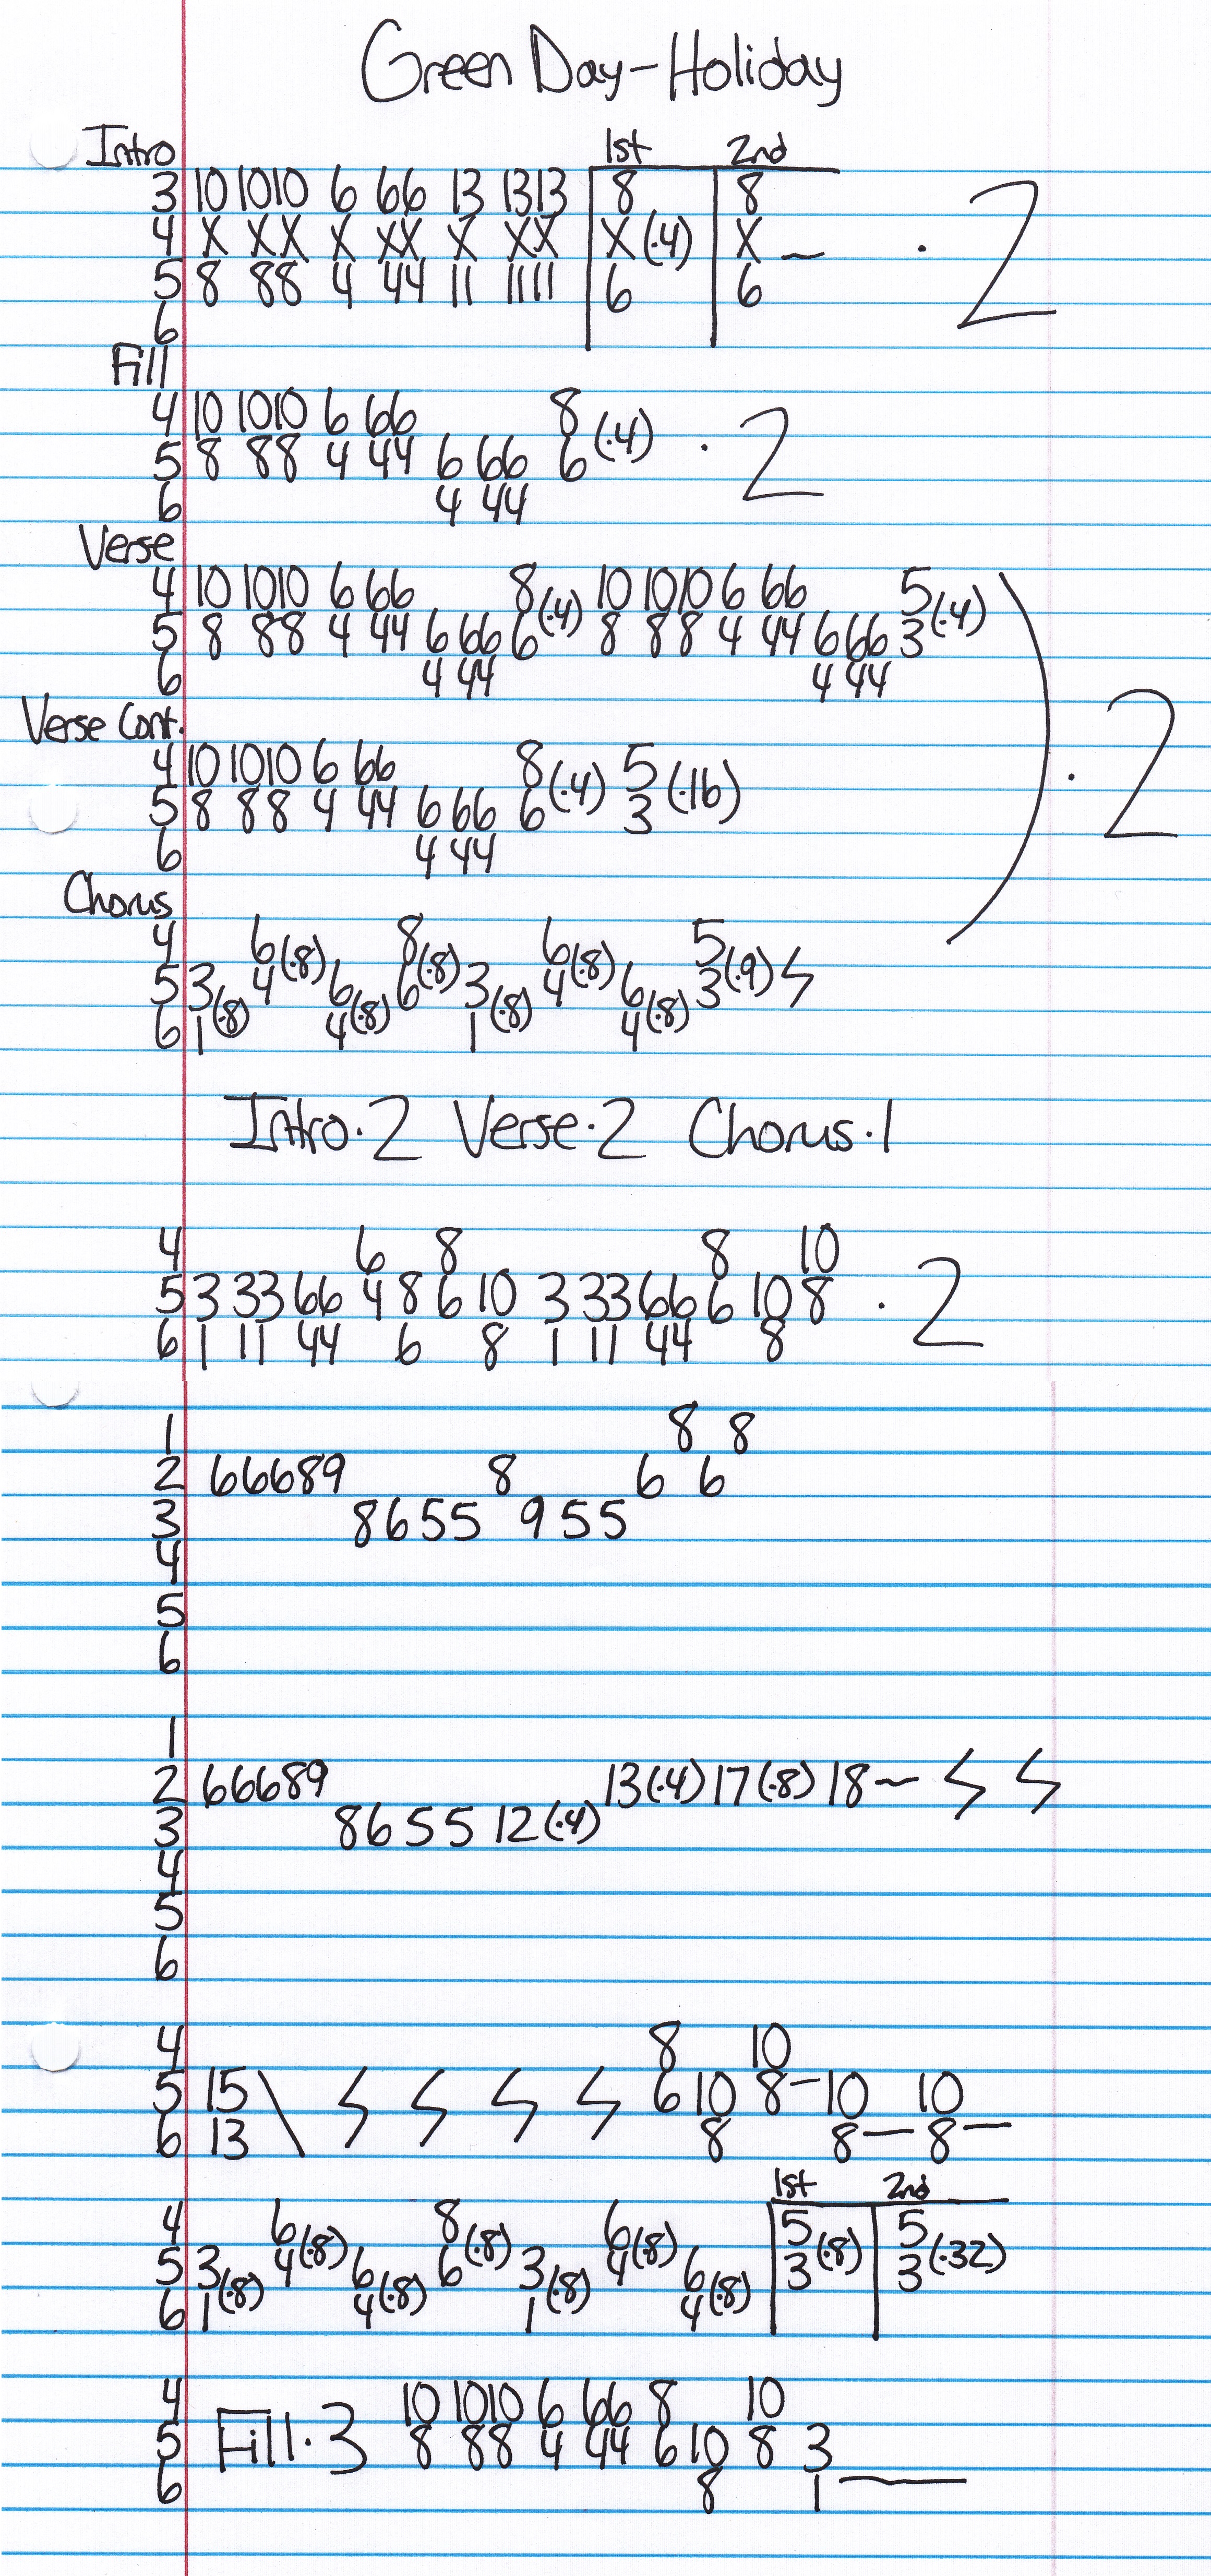 Green Day-Holiday
Intro 1st 2nd
3 10 1010 6 66 13 1313 8 8
4 X XX X XX X XX X (·4) X ~ · 2
5 8 88 4 44 11 1111 6 6
6
Fill
4 10 1010 6 66 8
5 8 88 4 44 6 66 6 (·4) · 2
6 4 44
Verse
4 10 1010 6 66 8 10 1010 6 66 5
5 8 88 4 44 6 66 6 (·4) 8 88 4 44 6 66 3 (·4)
6 4 44 4 44
Verse Cont.
4 10 1010 6 66 8 5
5 8 88 4 44 6 66 6 (·4) 3 (·16) · 2
6 4 44
Chorus
4 6 8 6 5
5 3 4 (·8) 6 6 (·8) 3 4 (·8) 6 3 (·9)
6 1 (·8) 4 (·8) 1 (·8) 4 (·8)
Intro·2 Verse·2 Chorus·1
4 6 8 8 10
5 3 33 66 4 8 6 10 3 33 66 6 10 8 · 2
6 1 11 44 6 8 1 11 44 8
1 8 8
2 66689 8 6 6
3 8655 955
4
5
6
1
2 66689 13(·4) 17(·8) 18~
3 8655 12(·4)
4
5
6
4 8 10
5 15 6 10 8- 10 10
6 13 \ 8 8- 8-
1st 2nd
4 6 8 6 5 5
5 3 4 (·8) 6 6 (·8) 3 4 (·8) 6 3 (·8) 3 (·32)
6 1 (·8) 4 (·8) 1 (·8) 4 (·8)
4 10 1010 6 66 8 10
5 Fill·3 8 88 4 44 6 10 8 3
6 8 1 —